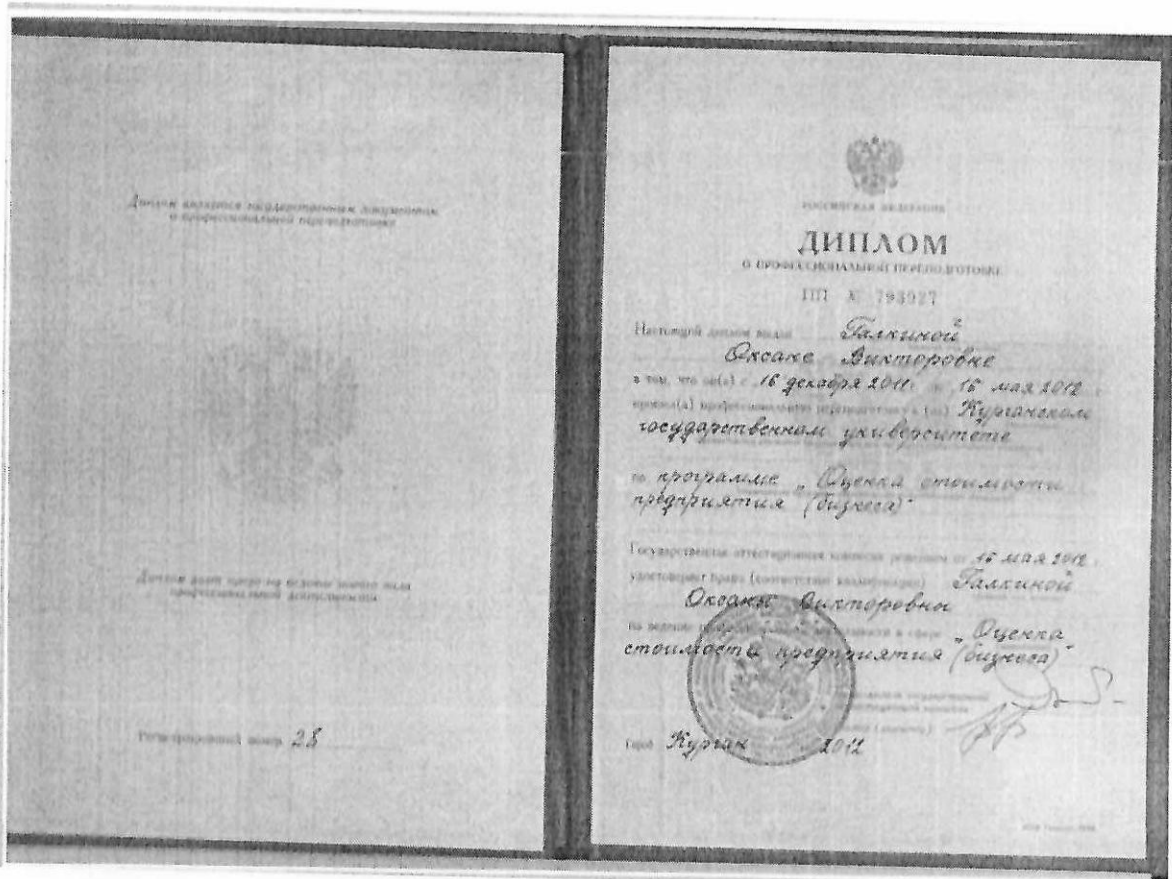 Диплом является государственным документом
о профессиональной переподготовке
Диплом дает право на ведение нового вида
профессиональной деятельности
Регистрационный номер 28
РОССИЙСКАЯ ФЕДЕРАЦИЯ
ДИПЛОМ
О ПРОФЕССИОНАЛЬНОЙ ПЕРЕПОДГОТОВКЕ
ПП № 793927
Настоящий диплом выдан Галкиной
Оксане Викторовне
в том, что он(а) с 16 декабря 2011 г. по 16 мая 2012 г.
прошел(а) профессиональную переподготовку в (на) Курганском
государственном университете
по программе „Оценка стоимости
предприятия (бизнеса)"
Государственная аттестационная комиссия решением от 16 мая 2012 г.
удостоверяет право (соответствие квалификации) Галкиной
Оксаны Викторовны
на ведение профессиональной деятельности в сфере „Оценка
стоимости предприятия (бизнеса)"
Город Курган 2012